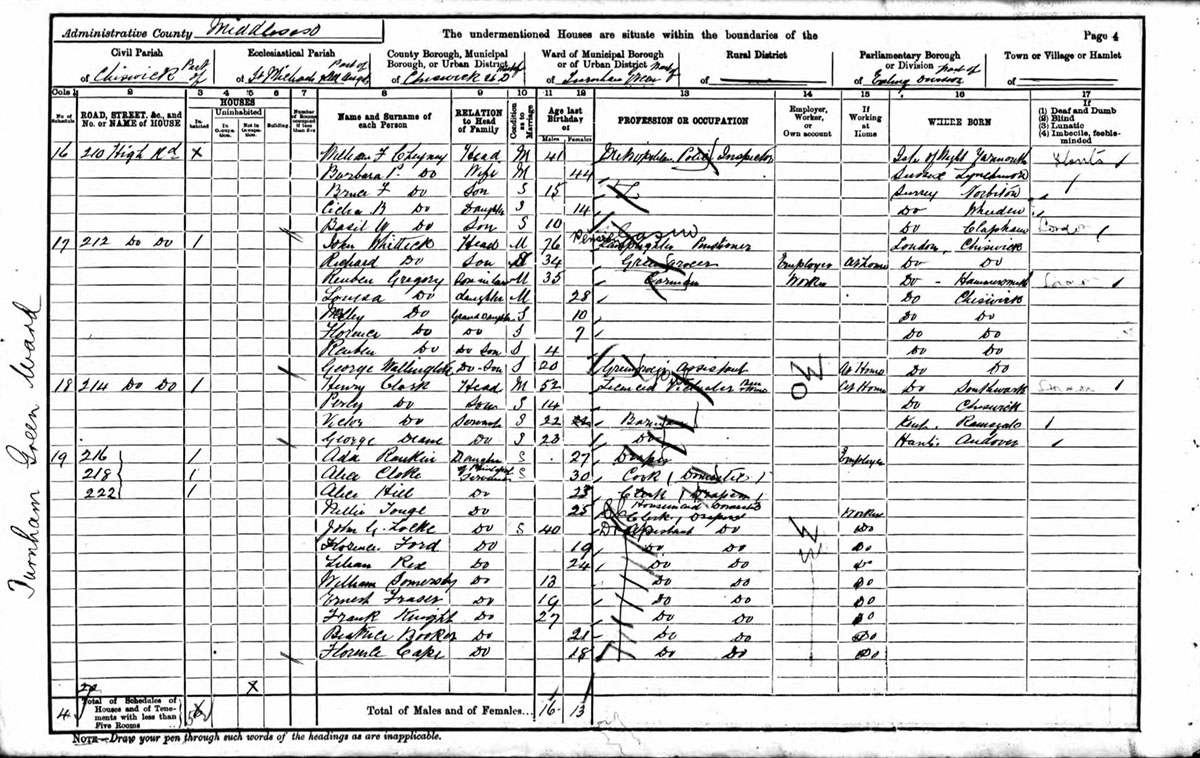 Administrative County Middlesex
The undermentioned Houses are situate within the boundaries of the
Page 4
Civil Parish
of Chiswick Part of
Ecclesiastical Parish
of St Michaels Part of
County Borough, Municipal Borough, or Urban District
of Chiswick U D
Ward of Municipal Borough or of Urban District
of Turnham Green
Rural District
of
Parliamentary Borough or Division
of Ealing Division
Town or Village or Hamlet
of
Cols 1 2 3 4 5 6 7 8 9 10 11 12 13 14 15 16 17
No. of Schedule
ROAD, STREET, &c., and No. or NAME of HOUSE
HOUSES
Inhabited
Uninhabited
In Occupation
Not in Occupation
Building
Number of Rooms occupied if less than five
Name and Surname of each Person
RELATION to Head of Family
Condition as to Marriage
Age last Birthday of
Males Females
PROFESSION OR OCCUPATION
Employer, Worker, or Own account
If Working at Home
WHERE BORN
If
(1) Deaf and Dumb
(2) Blind
(3) Lunatic
(4) Imbecile, feeble-minded
16 210 High Rd X William F Cheyney Head M 41 Metropolitan Police Inspector Isle of Wight Yarmouth Hants
Barbara Do Wife M 44 Sussex
Bruce F Do Son S 15 Surrey Norbiton
B Do Daughter S 14 Do
Basil W Do Son S 10 Do Clapham
17 212 Do Do 1 John Whittick Head M 76 Pensioner London, Chiswick
Richard Do Son 34 Greengrocer Employer At Home Do Do
Reuben Gregory Son in law M 35 Carman Worker Do Hammersmith
Louisa Do daughter M 28 Do Chiswick
Do Grand Daughter S 10 Do Do
Florence Do Do S 7 Do Do
Reuben Do Do Son S 4 Do Do
George Do Son S 20 Assistant At Home Do Do
18 214 Do Do 1 Henry Clark Head M 52 Licenced Victualler At Home Do Southwark
Percy Do Son S 14 Do Chiswick
Servant S 22 Barman Kent Ramsgate
George Deane Do S 23 Do Hants Andover
19 216 1 Ada Rankin Daughter S 27 Draper Employer
218 1 Alice Cloke Servant S 30 Cook (Domestic)
222 1 Alice Hill Do 23 Clerk (Drapery)
Nellie Tonge Do 25 Housemaid Domestic Worker
John G. Locke Do S 40 Assistant Do Do
Florence Ford Do 19 Do Do Do
Lilian Rex Do 24 Do Do Do
William Somersby Do Do Do Do
Ernest Fraser Do 19 Do Do Do
Frank Knight Do 27 Do Do Do
Beatrice Booker Do 21 Do Do Do
Florence Cape Do 18 Do Do Do
X
4 Total of Schedules of Houses and of Tenements with less than Five Rooms
Total of Males and of Females... 16 13
NOTE—Draw your pen through such words of the headings as are inapplicable.
Turnham Green Ward